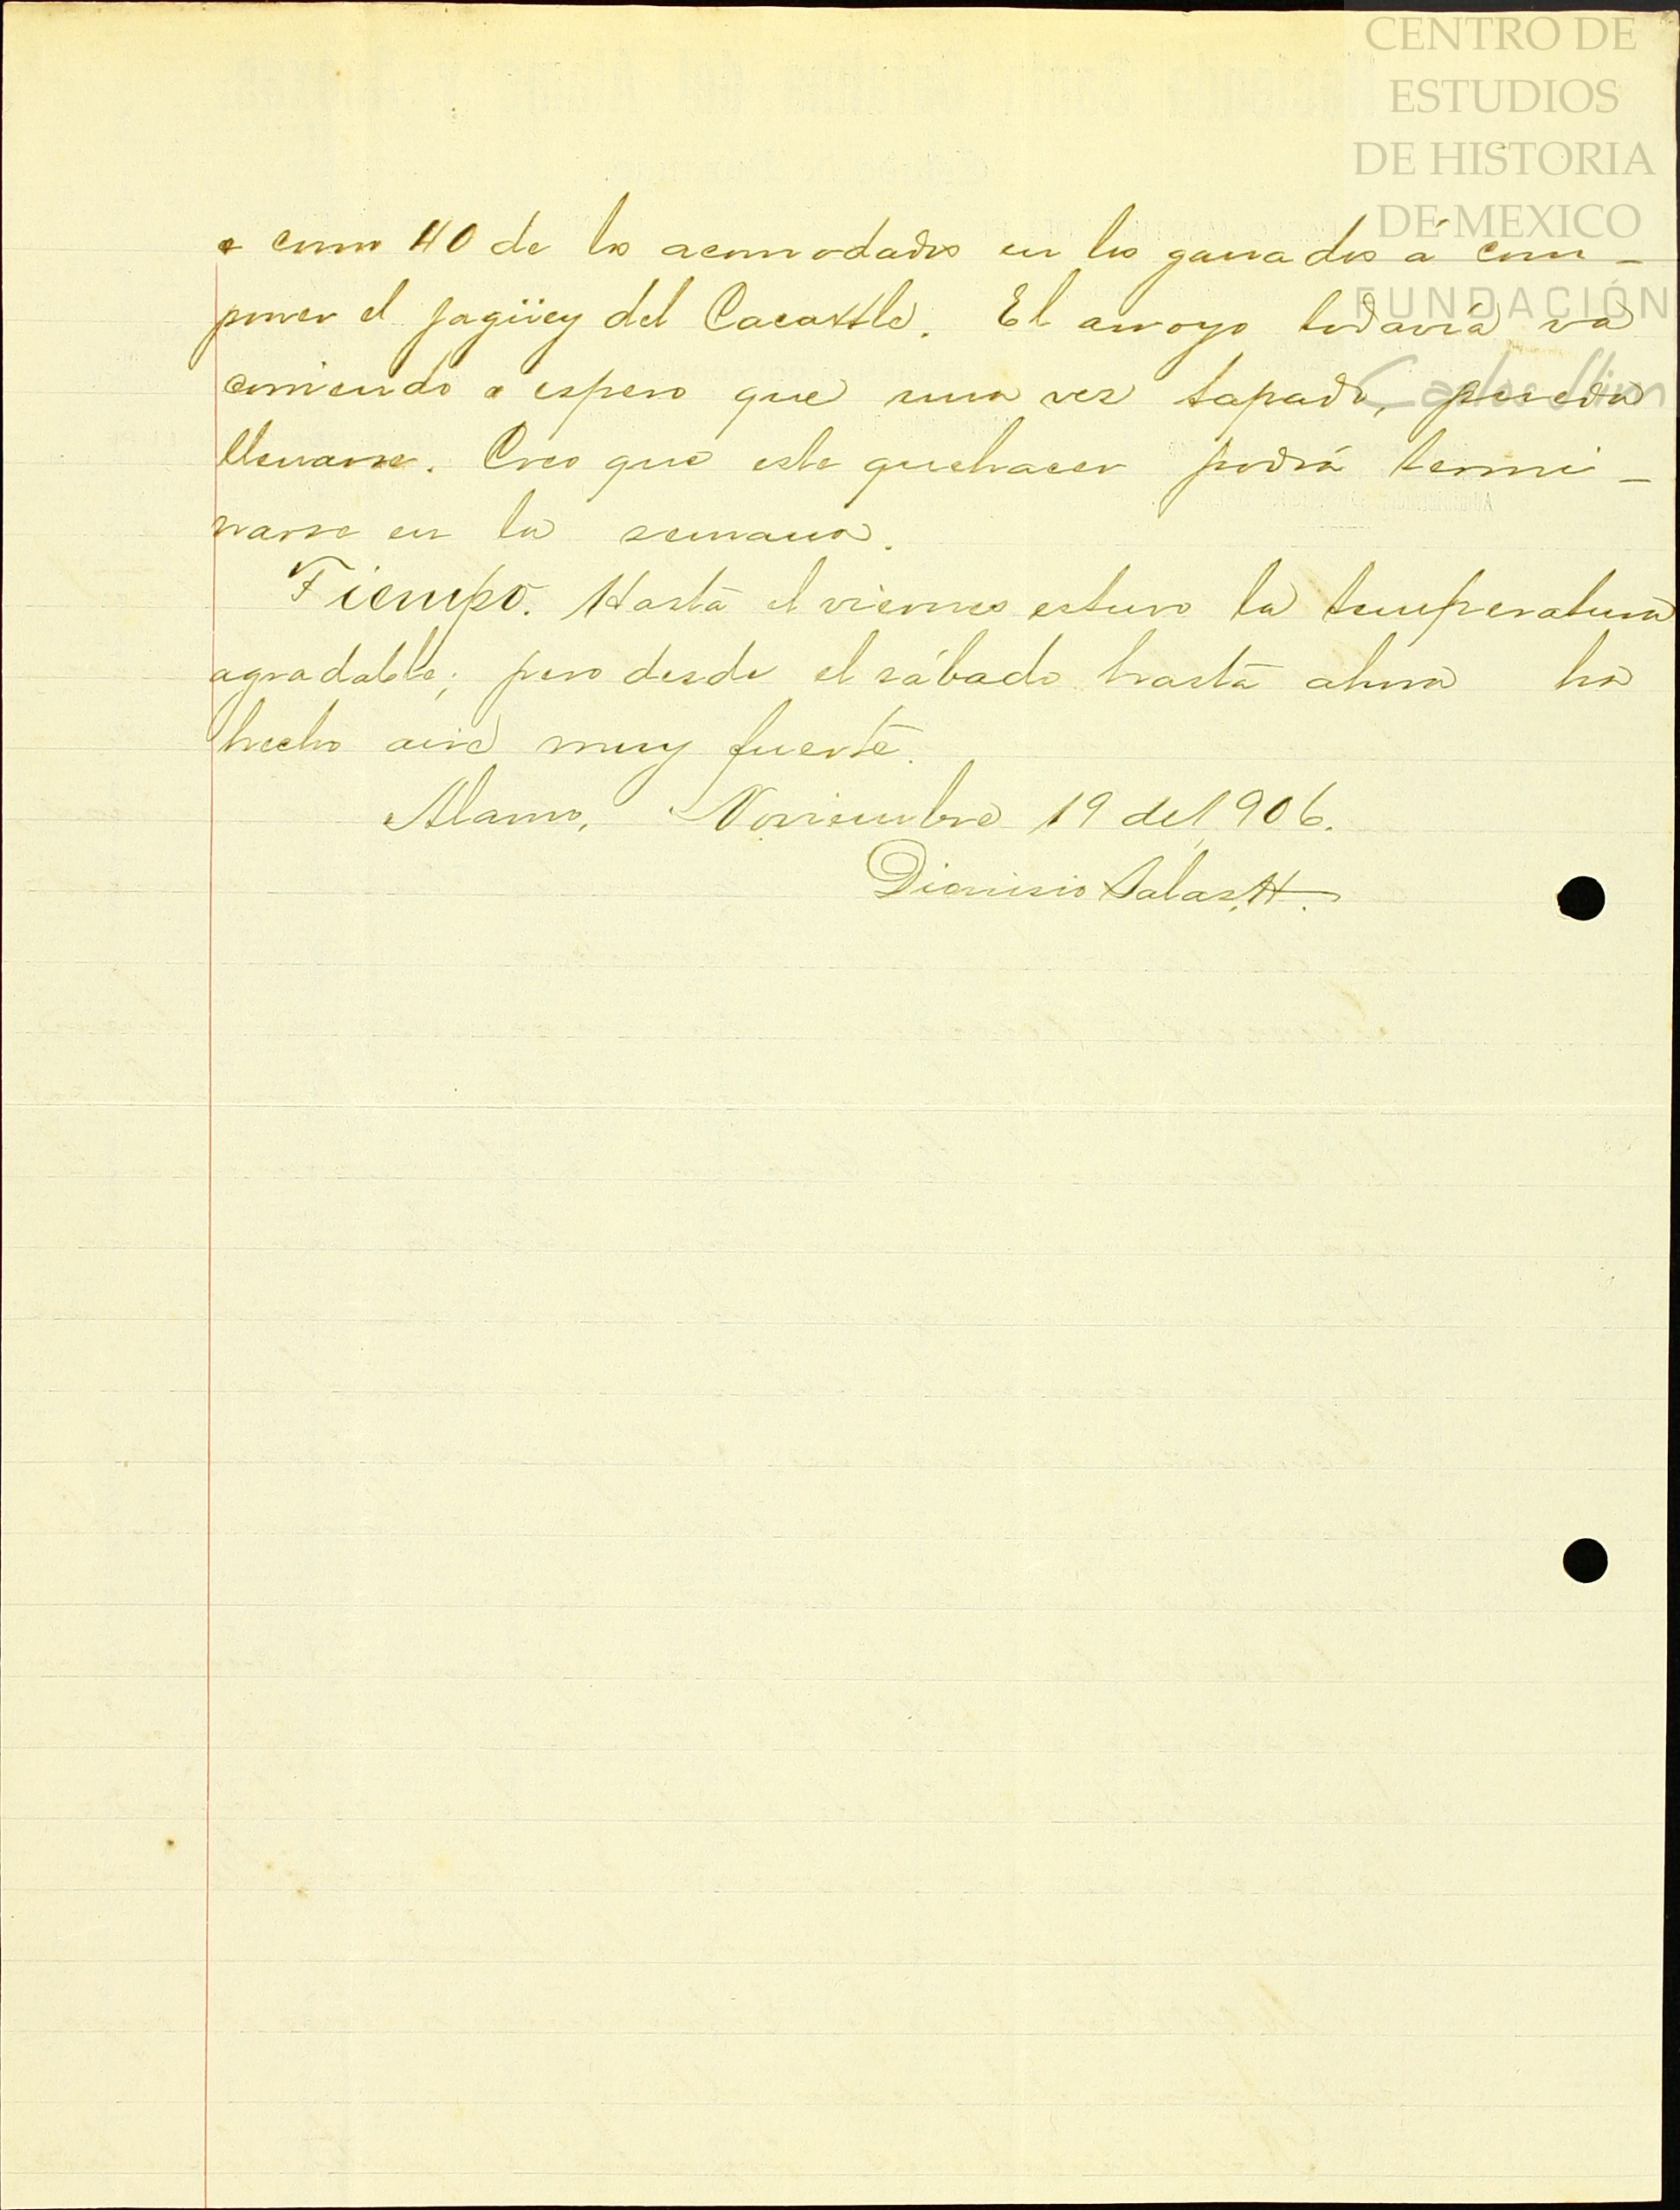 CENTRO DE
ESTUDIOS
DE HISTORIA
DE MEXICO
FUNDACIÓN
Carlos Slim
como 40 de los acomodados en los ganados á com-
poner el jagüey del Cacaxtle. El arroyo todavía va
corriendo espero que una vez tapado, pueda
llenarse. Creo que este quehacer podrá termi-
narse en la semana.
Tiempo. Hasta el viernes estuvo la temperatura
agradable; pero desde el sábado hasta ahora ha
hecho aire muy fuerte.
Alamo, Noviembre 19 de 1906.
Dionisio Salas H.